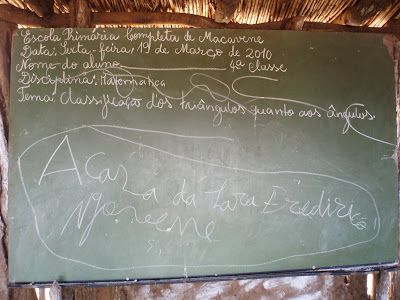 Escola Primária Completa de Macavene
Data: Sexta-feira, 19 de Março de 2010
Nome do aluno 4ª classe
Disciplina: Matemática
Tema: classificação dos triângulos quanto aos ângulos.
A casa da Sara